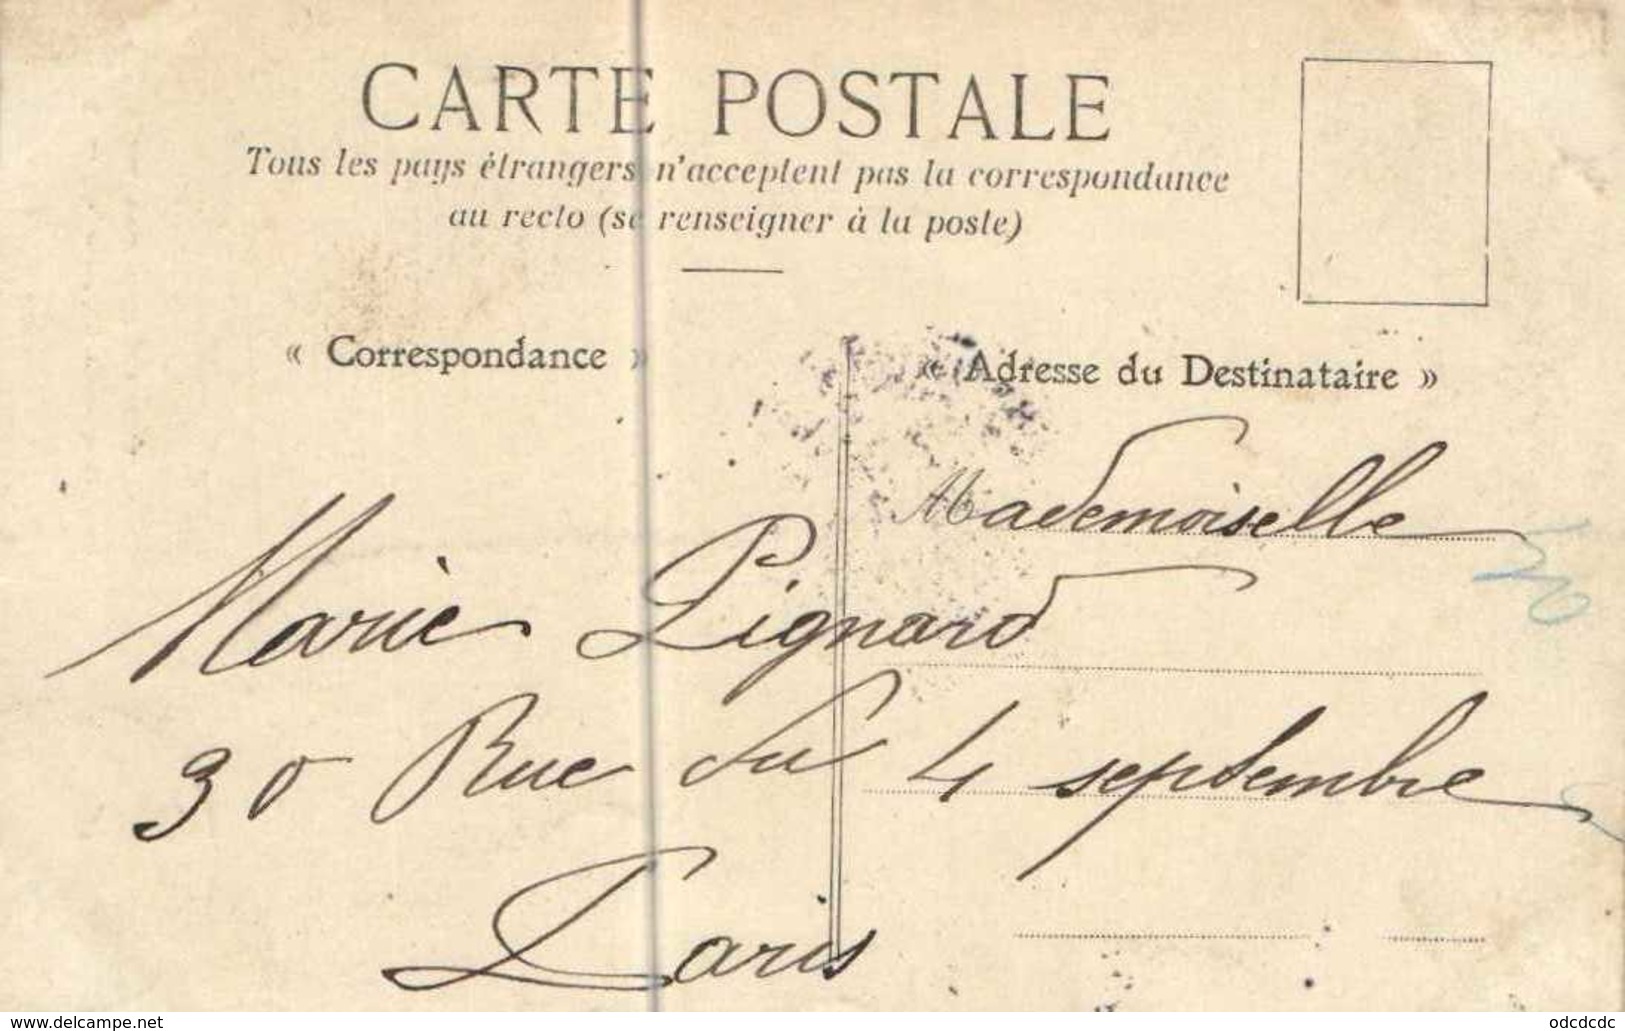 CARTE POSTALE
Tous les pays étrangers n'acceptent pas la correspondance
au recto (se renseigner à la poste)
« Correspondance »
« Adresse du Destinataire »
Mademoiselle
Marie Pignard
30 Rue du 4 septembre
Paris
www.delcampe.net
odcdcdc